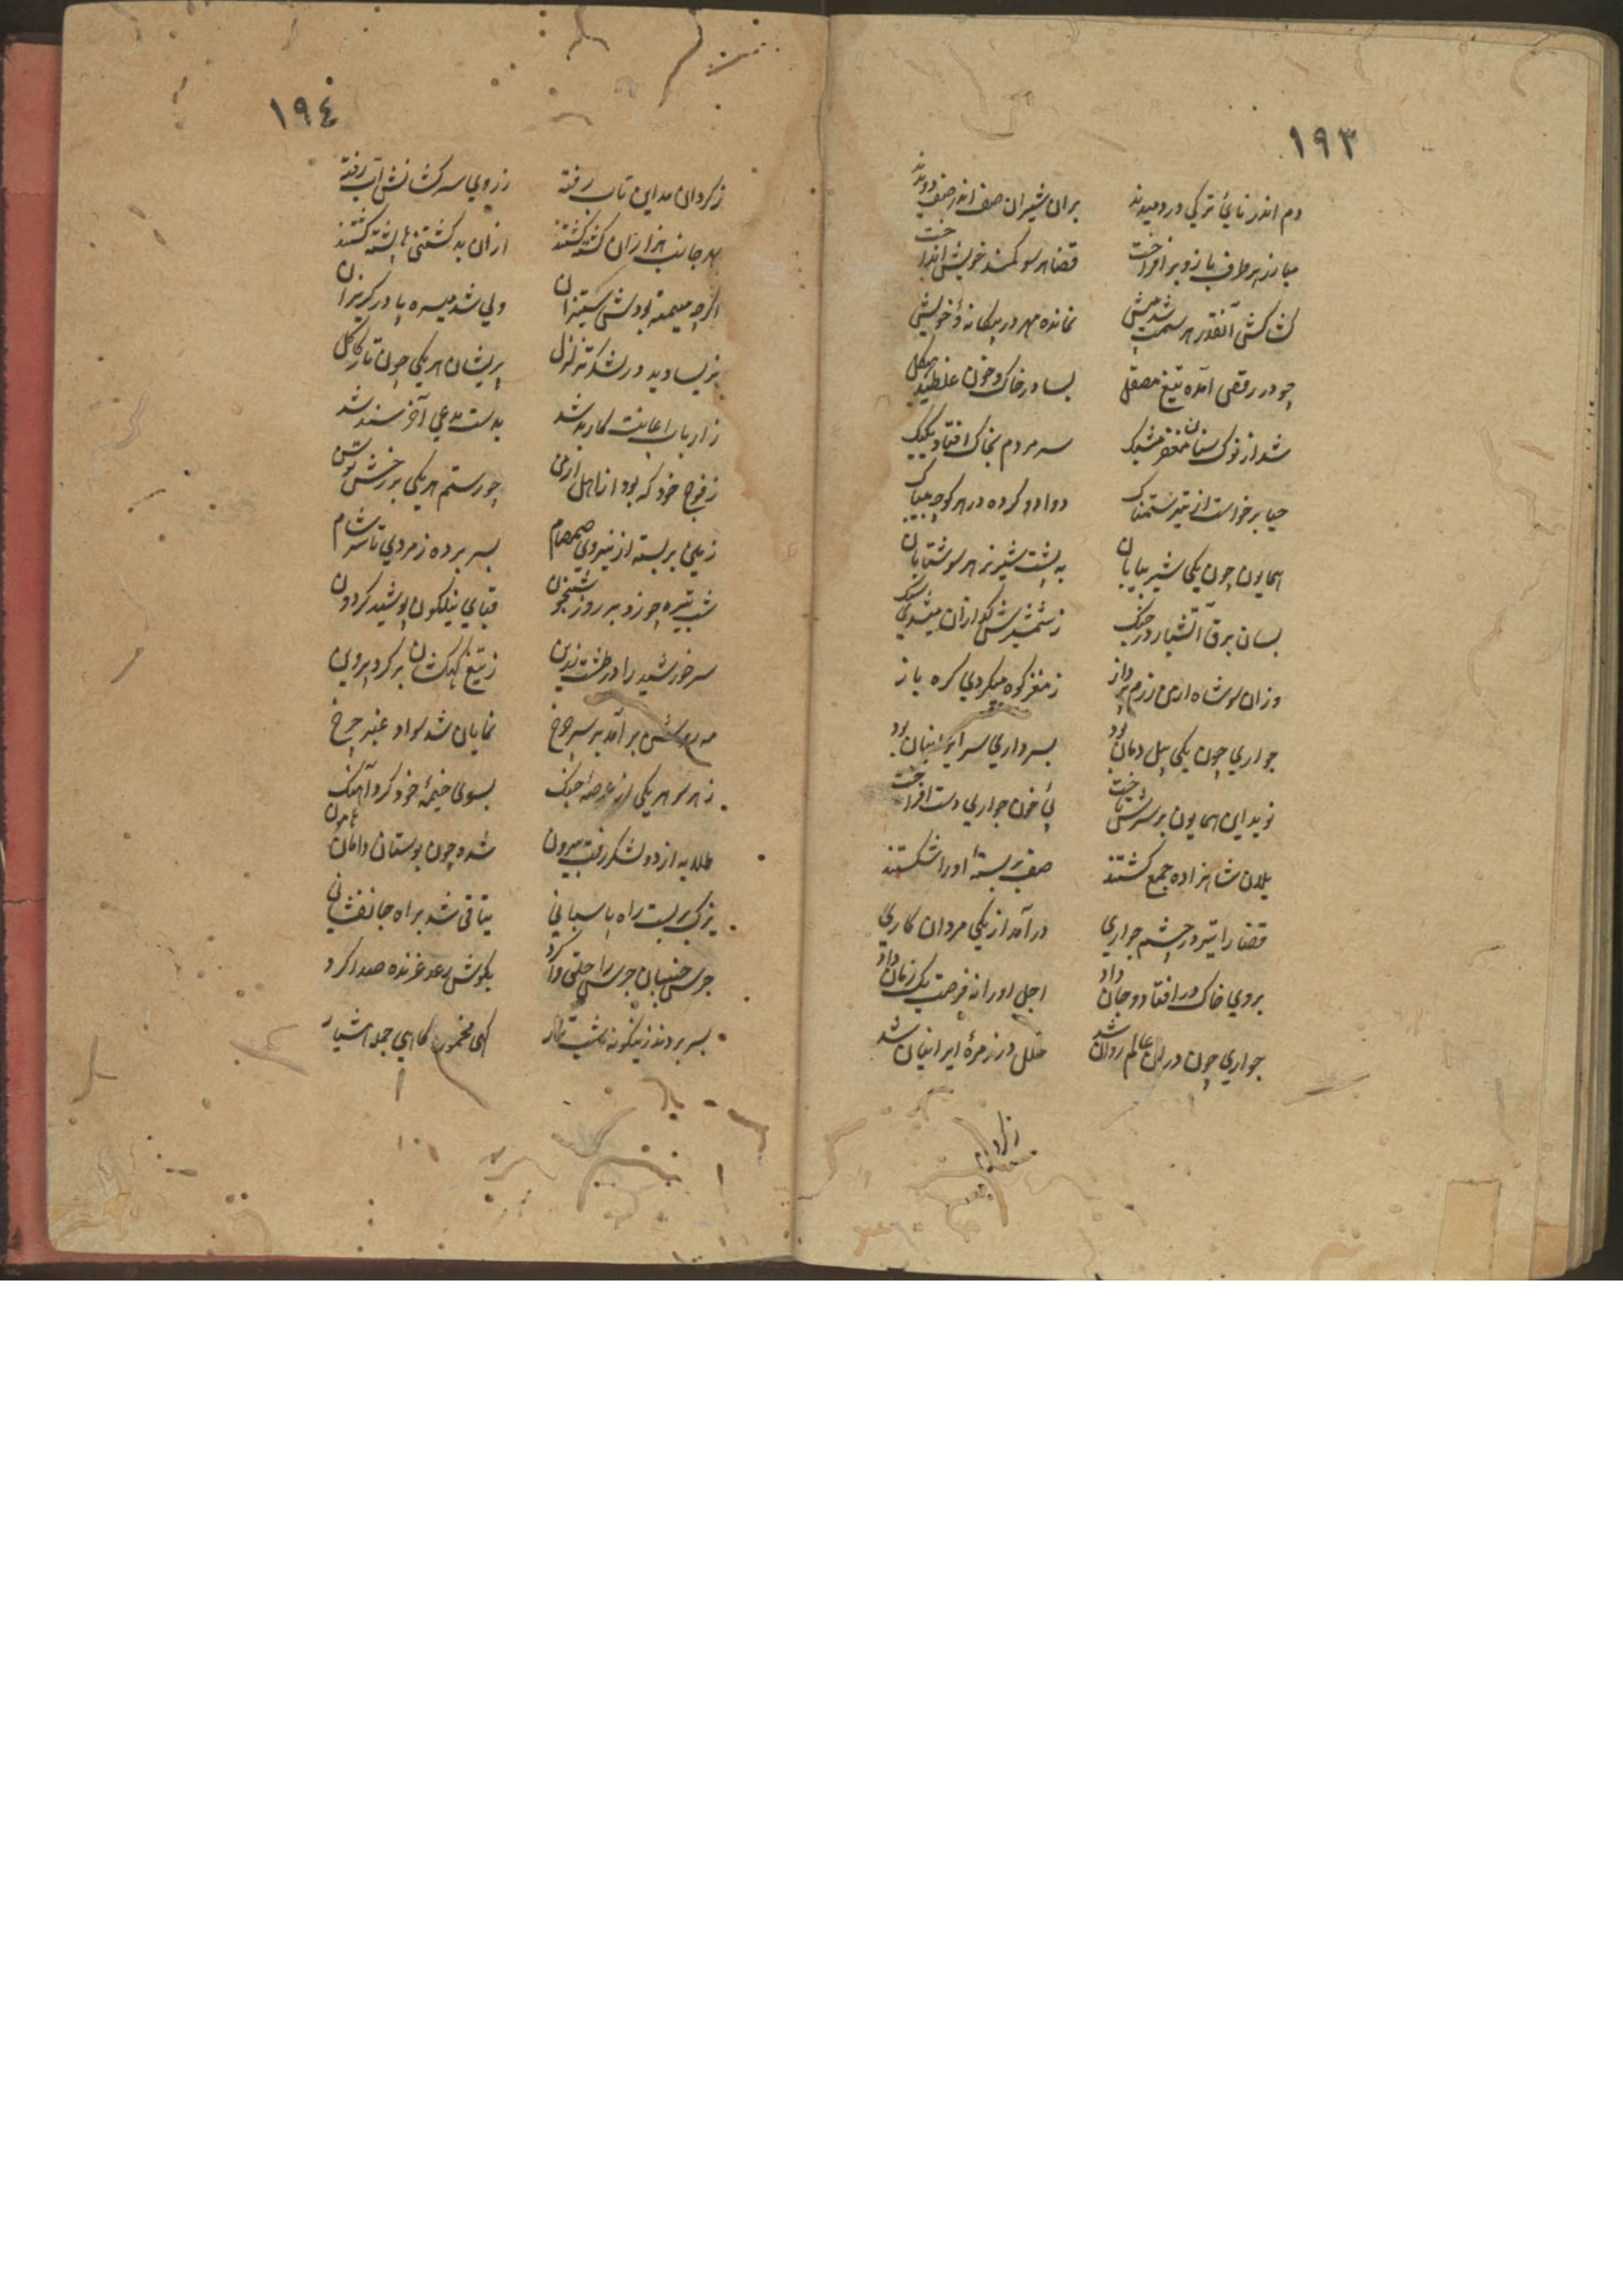 ١٩٣
دم اندر نایٔ ترکی در دمیدند بران شیران صف اندر صف دویدند
مبارز هر طرف بازو بر افراخت قضا هر سو کمند خویش انداخت
کشاکش آنقدر هر سمت شد پیش نمانده مهر در بیکانه و خویش
چو در رقص آمده تیغ مصقل بسا در خاک و خون غلطید هیکل
شد از نوک سنان مغفر مشبک سر مردم بخاک افتاد یکیک
حیا برخواست از تیر ستمناک دوادو کرده در هر کوچه بیباک
همایون چون یکی شیر بیابان به پشت شیر نر هر سو شتابان
بسان برق آتشبار در جنک ز شمشیرش کدازان میشدی سنک
وزان سو شاه ارمن رزم پرداز ز مغز کوه میکردی کره باز
جواری چون یکی پیل دمان بود بسرداری سر ایرانیان بود
نوید این همایون بر سرش تاخت پئ خون جواری دست افراخت
یلان شاهزاده جمع کشتند صف بر بستهٔ او را شکستند
قضا را تیر در چشم جواری در آمد از یکی مردان کاری
بروی خاک در افتاد و جان داد اجل او را نه فرصت یک زمان داد
جواری چون در ان عالم روان شد خلل در زمرهٔ ایرانیان شد
زکردان
١٩٤
زکردان مداین تاب رفته ز روی سرکشانش آب رفته
بهر جانب هزاران کشته کشتند ازان به کشتنی‌ها پشته کشتند
اکرچه میمنه بودش ستیزان ولی شد میسره پا در کریزان
بزیسا دید در لشکر تزلزل پریشان هر یکی چون تار کاکل
ز ارباب اعانت کاربند شد بدست مدعی آخر سند شد
ز فوج خود که بود از اهل ارمن چو رستم هر یکی بر رخش توسن
زیلی بر بسته از نیروی صمصام بسر برده ز مردی تا سر شام
شب تیره چو زد بر روز شبخون قبای نیلکون پوشید کردون
سر خورشید را در طشت زرین ز تیغ کهکشان کرد پروین
مه روشن بر آمد بر سر چرخ نمایان شد سواد عنبر چرخ
ز هر سو هر یکی از عرصهٔ جنک بسوی خیمهٔ خود کرد آهنک
طلایه از دو لشکر رفت بیرون شده چون بوستان دامان هامون
یزک بر بست راه پاسبانی یتاقی شد براه جانفشانی
جرس جنبان جرس را حلق وا کرد بکوش رعد غرنده صدا کرد
بسر بردند زینکونه شب تار کهی مخمور کاهی جمله هشیار